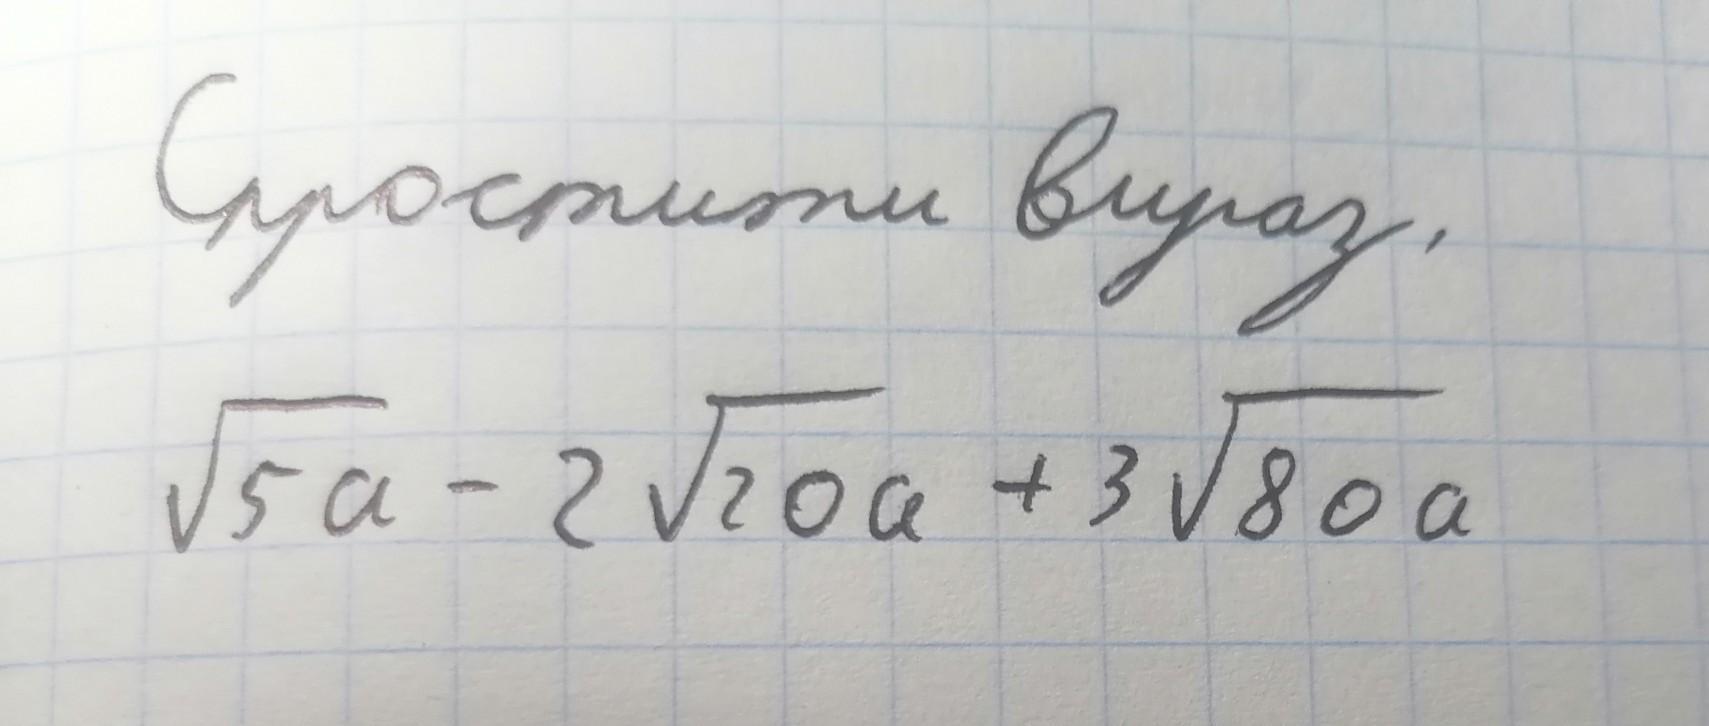 Спростити вираз.
√5a - 2√20a + 3√80a